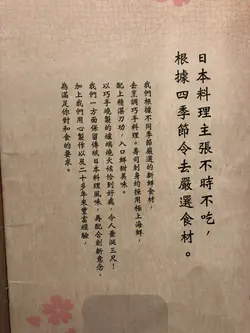 日本料理主張不時不吃，
根據四季節令去嚴選食材。
我們根據不同季節嚴選的新鮮食材，
去烹調巧手料理。壽司刺身均採用極上海鮮，
配上精湛刀功，入口鮮甜美味。
以巧手燒製的爐端燒火候恰到好處，令人垂涎三尺！
我們一方面保留傳統日本料理風味，再配合創新意念，
加上我們用心製作以及二十多年來豐富經驗，
為滿足你對和食的要求。